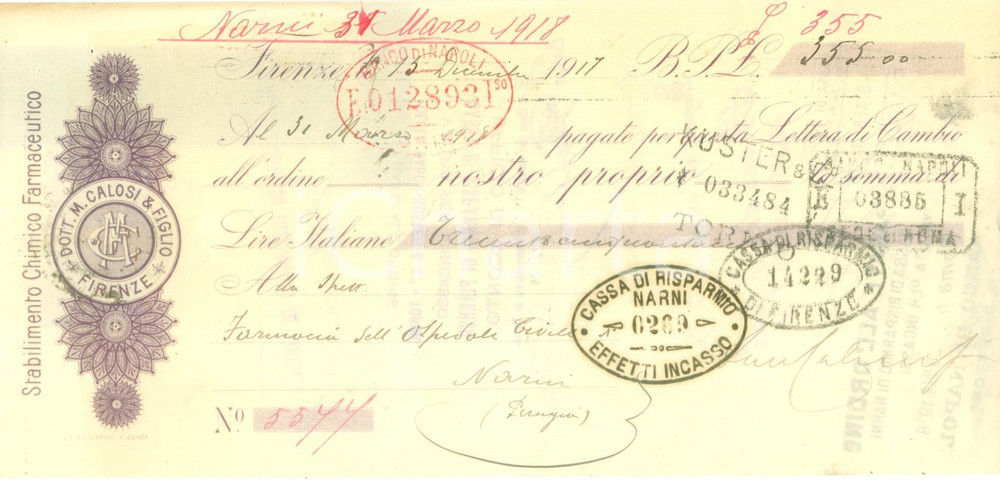 Narni 31 Marzo 1918 £ 355
Firenze, li 15 Dicembre 1917 B.P.L. 355.00
BANCO DI NAPOLI
E 012893 I SO
Al 31 Marzo 1918 pagate per questa Lettera di Cambio
all'ordine nostro proprio la somma di
KUSTER &
033484
NAPOLI
E 03885 I
Lire Italiane Trecentocinquanta
CASSA DI RISPARMIO
14229
DI FIRENZE
Alla Spett.
CASSA DI RISPARMIO
NARNI
0289
EFFETTI INCASSO
Farmacia dell'Ospedale Civile
Narni
(Perugia)
No 5577
Stabilimento Chimico Farmaceutico
DOTT. M. CALOSI & FIGLIO
FIRENZE